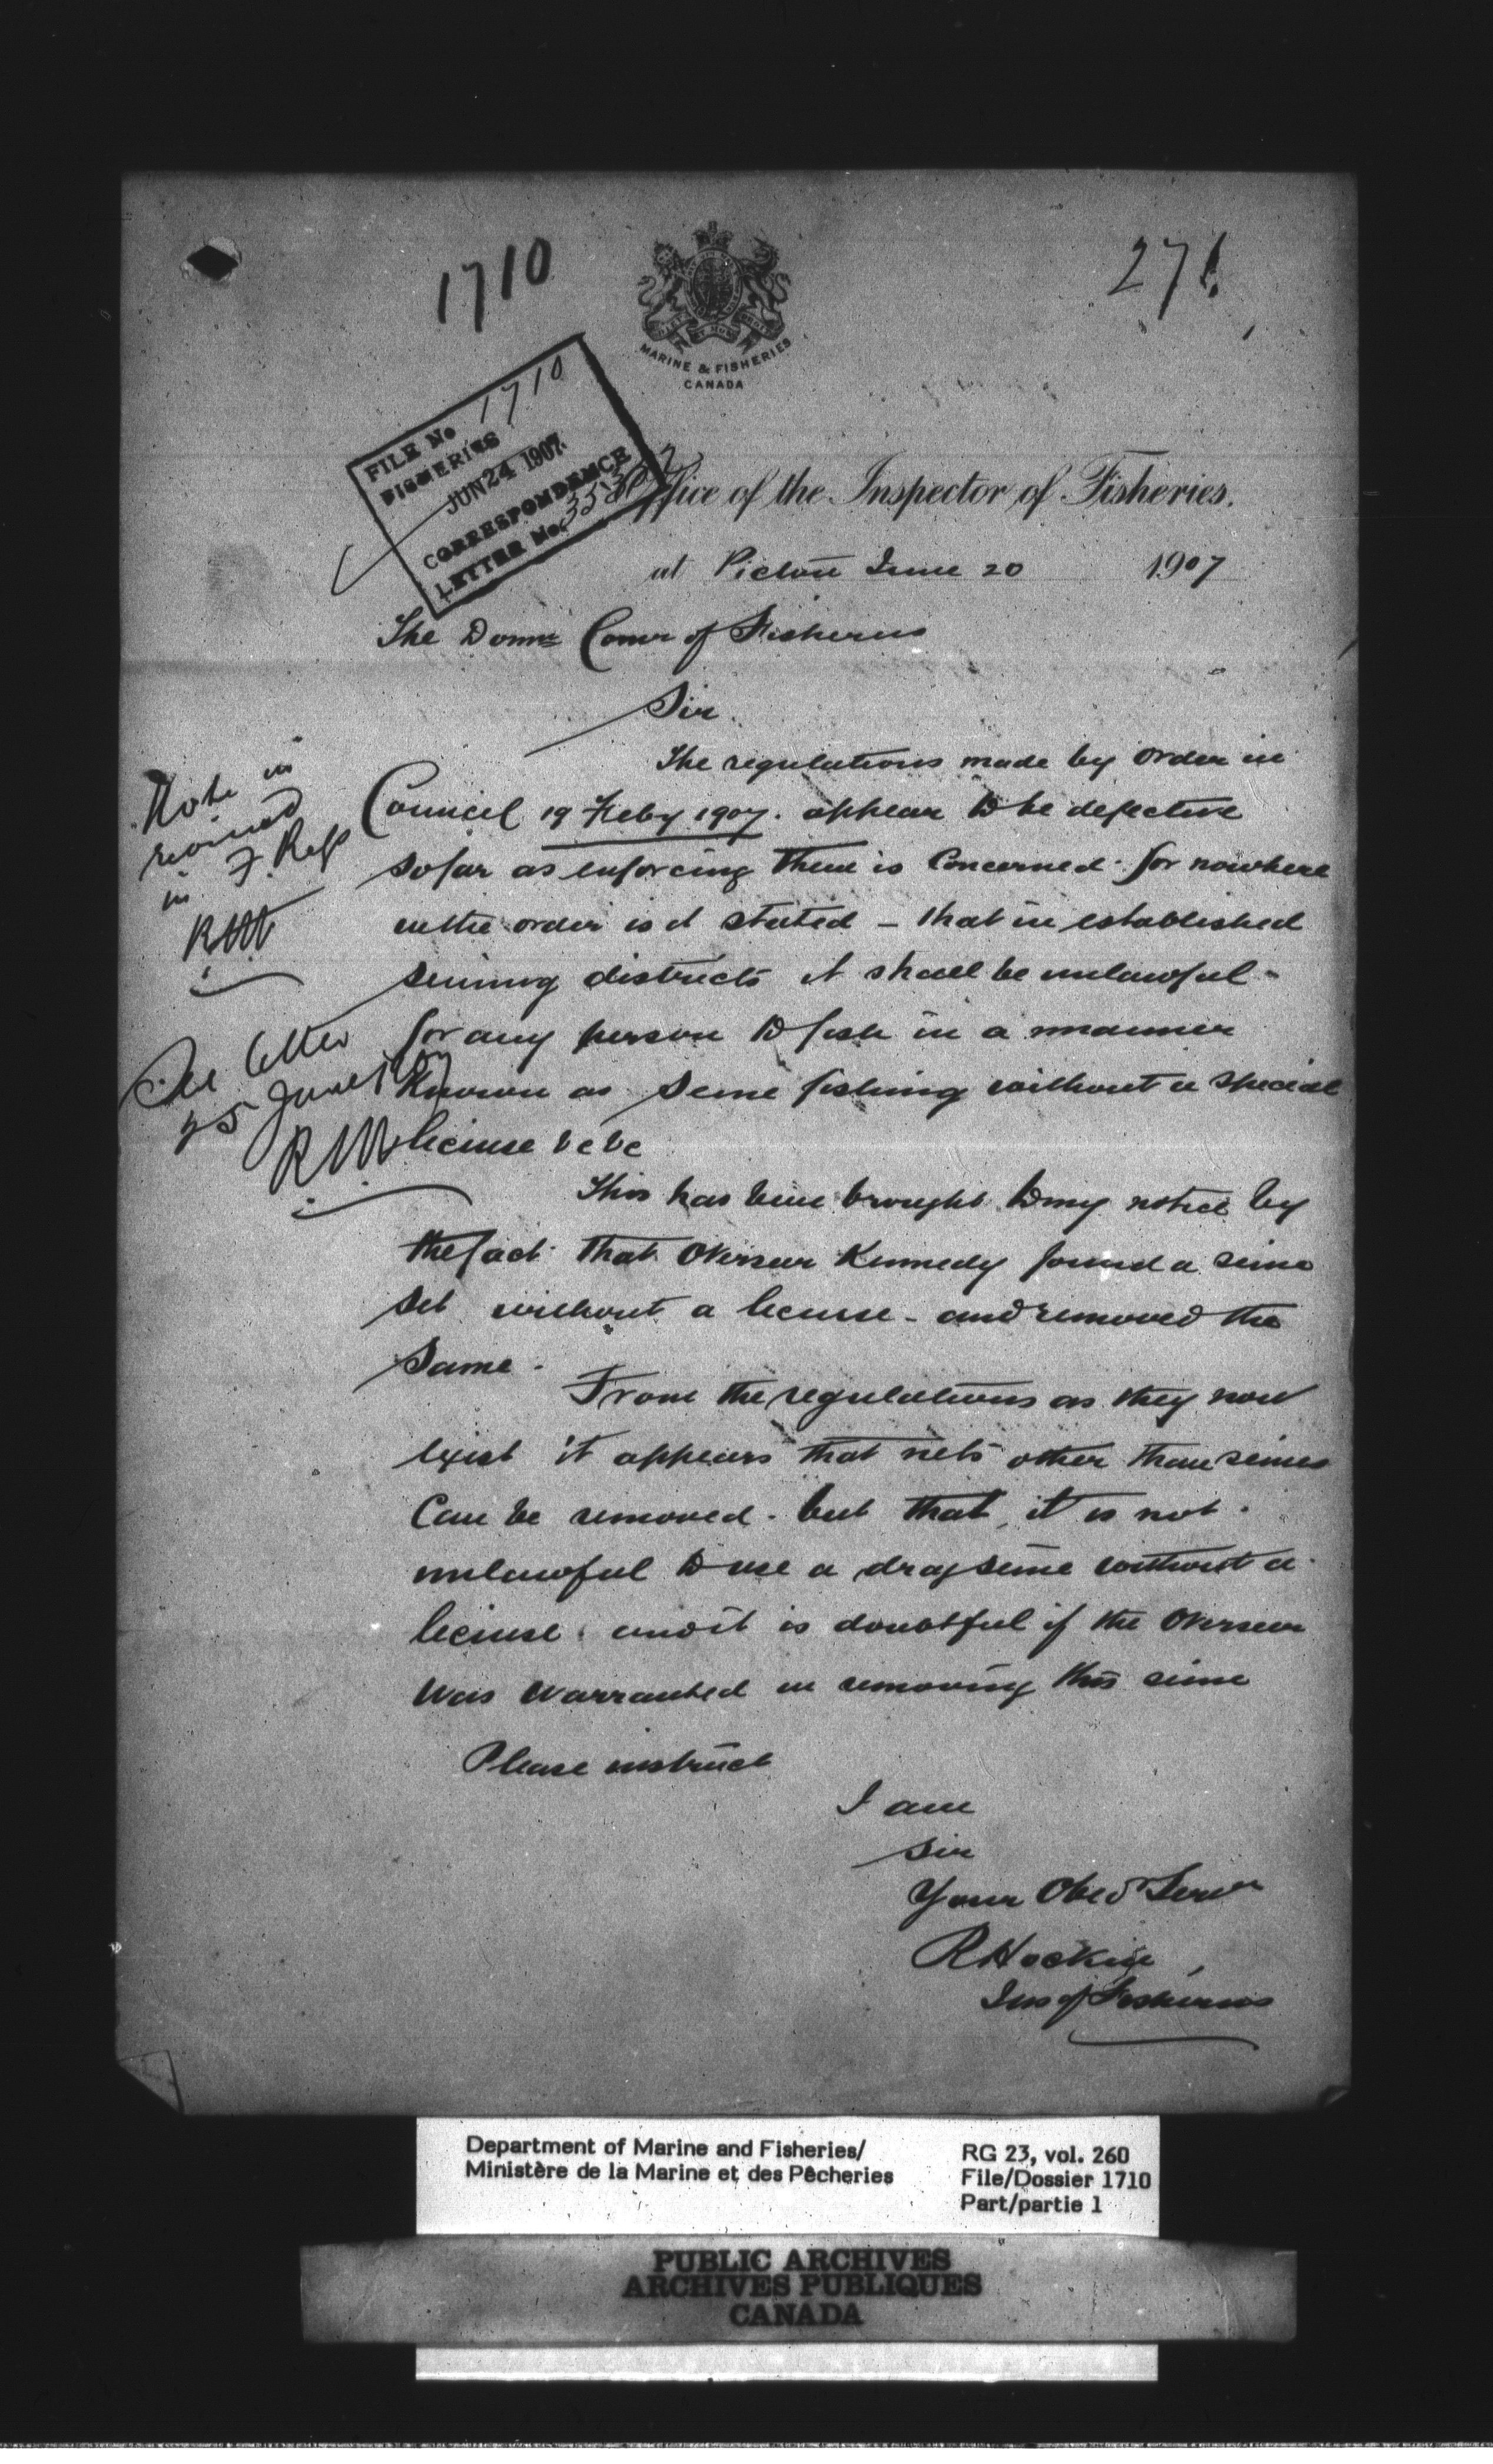 1710
271
MARINE & FISHERIES
CANADA
FILE No 1710
FISHERIES
JUN 24 1907
CORRESPONDENCE
LETTER No.
Office of the Inspector of Fisheries.
at Pictou June 20 1907
The Domn Comr of Fisheries
Sir.
The regulations made by order in
Council 19 Feby 1907. appear to be defective
so far as enforcing them is Concerned. for nowhere
in the order is it stated – that in established
seining districts it shall be unlawful –
for any person to fish in a manner
Known as Seine fishing without a special
license &c &c
This has been brought to my notice by
the fact that Overseer Kennedy found a seine
set without a license – and removed the
Same –
From the regulations as they now
exist it appears that nets other than seines
Can be removed – but that it is not
unlawful to use a drag seine without a
license. and it is doubtful if the Overseer
Was Warranted in removing this seine
Please instruct
I am
Sir
Your Obed Serv
R Hockin
Ins of Fisheries
Note in
revised
in F. Regs
See letter
25 June 1907
Department of Marine and Fisheries/
Ministère de la Marine et des Pêcheries
RG 23, vol. 260
File/Dossier 1710
Part/partie 1
PUBLIC ARCHIVES
ARCHIVES PUBLIQUES
CANADA